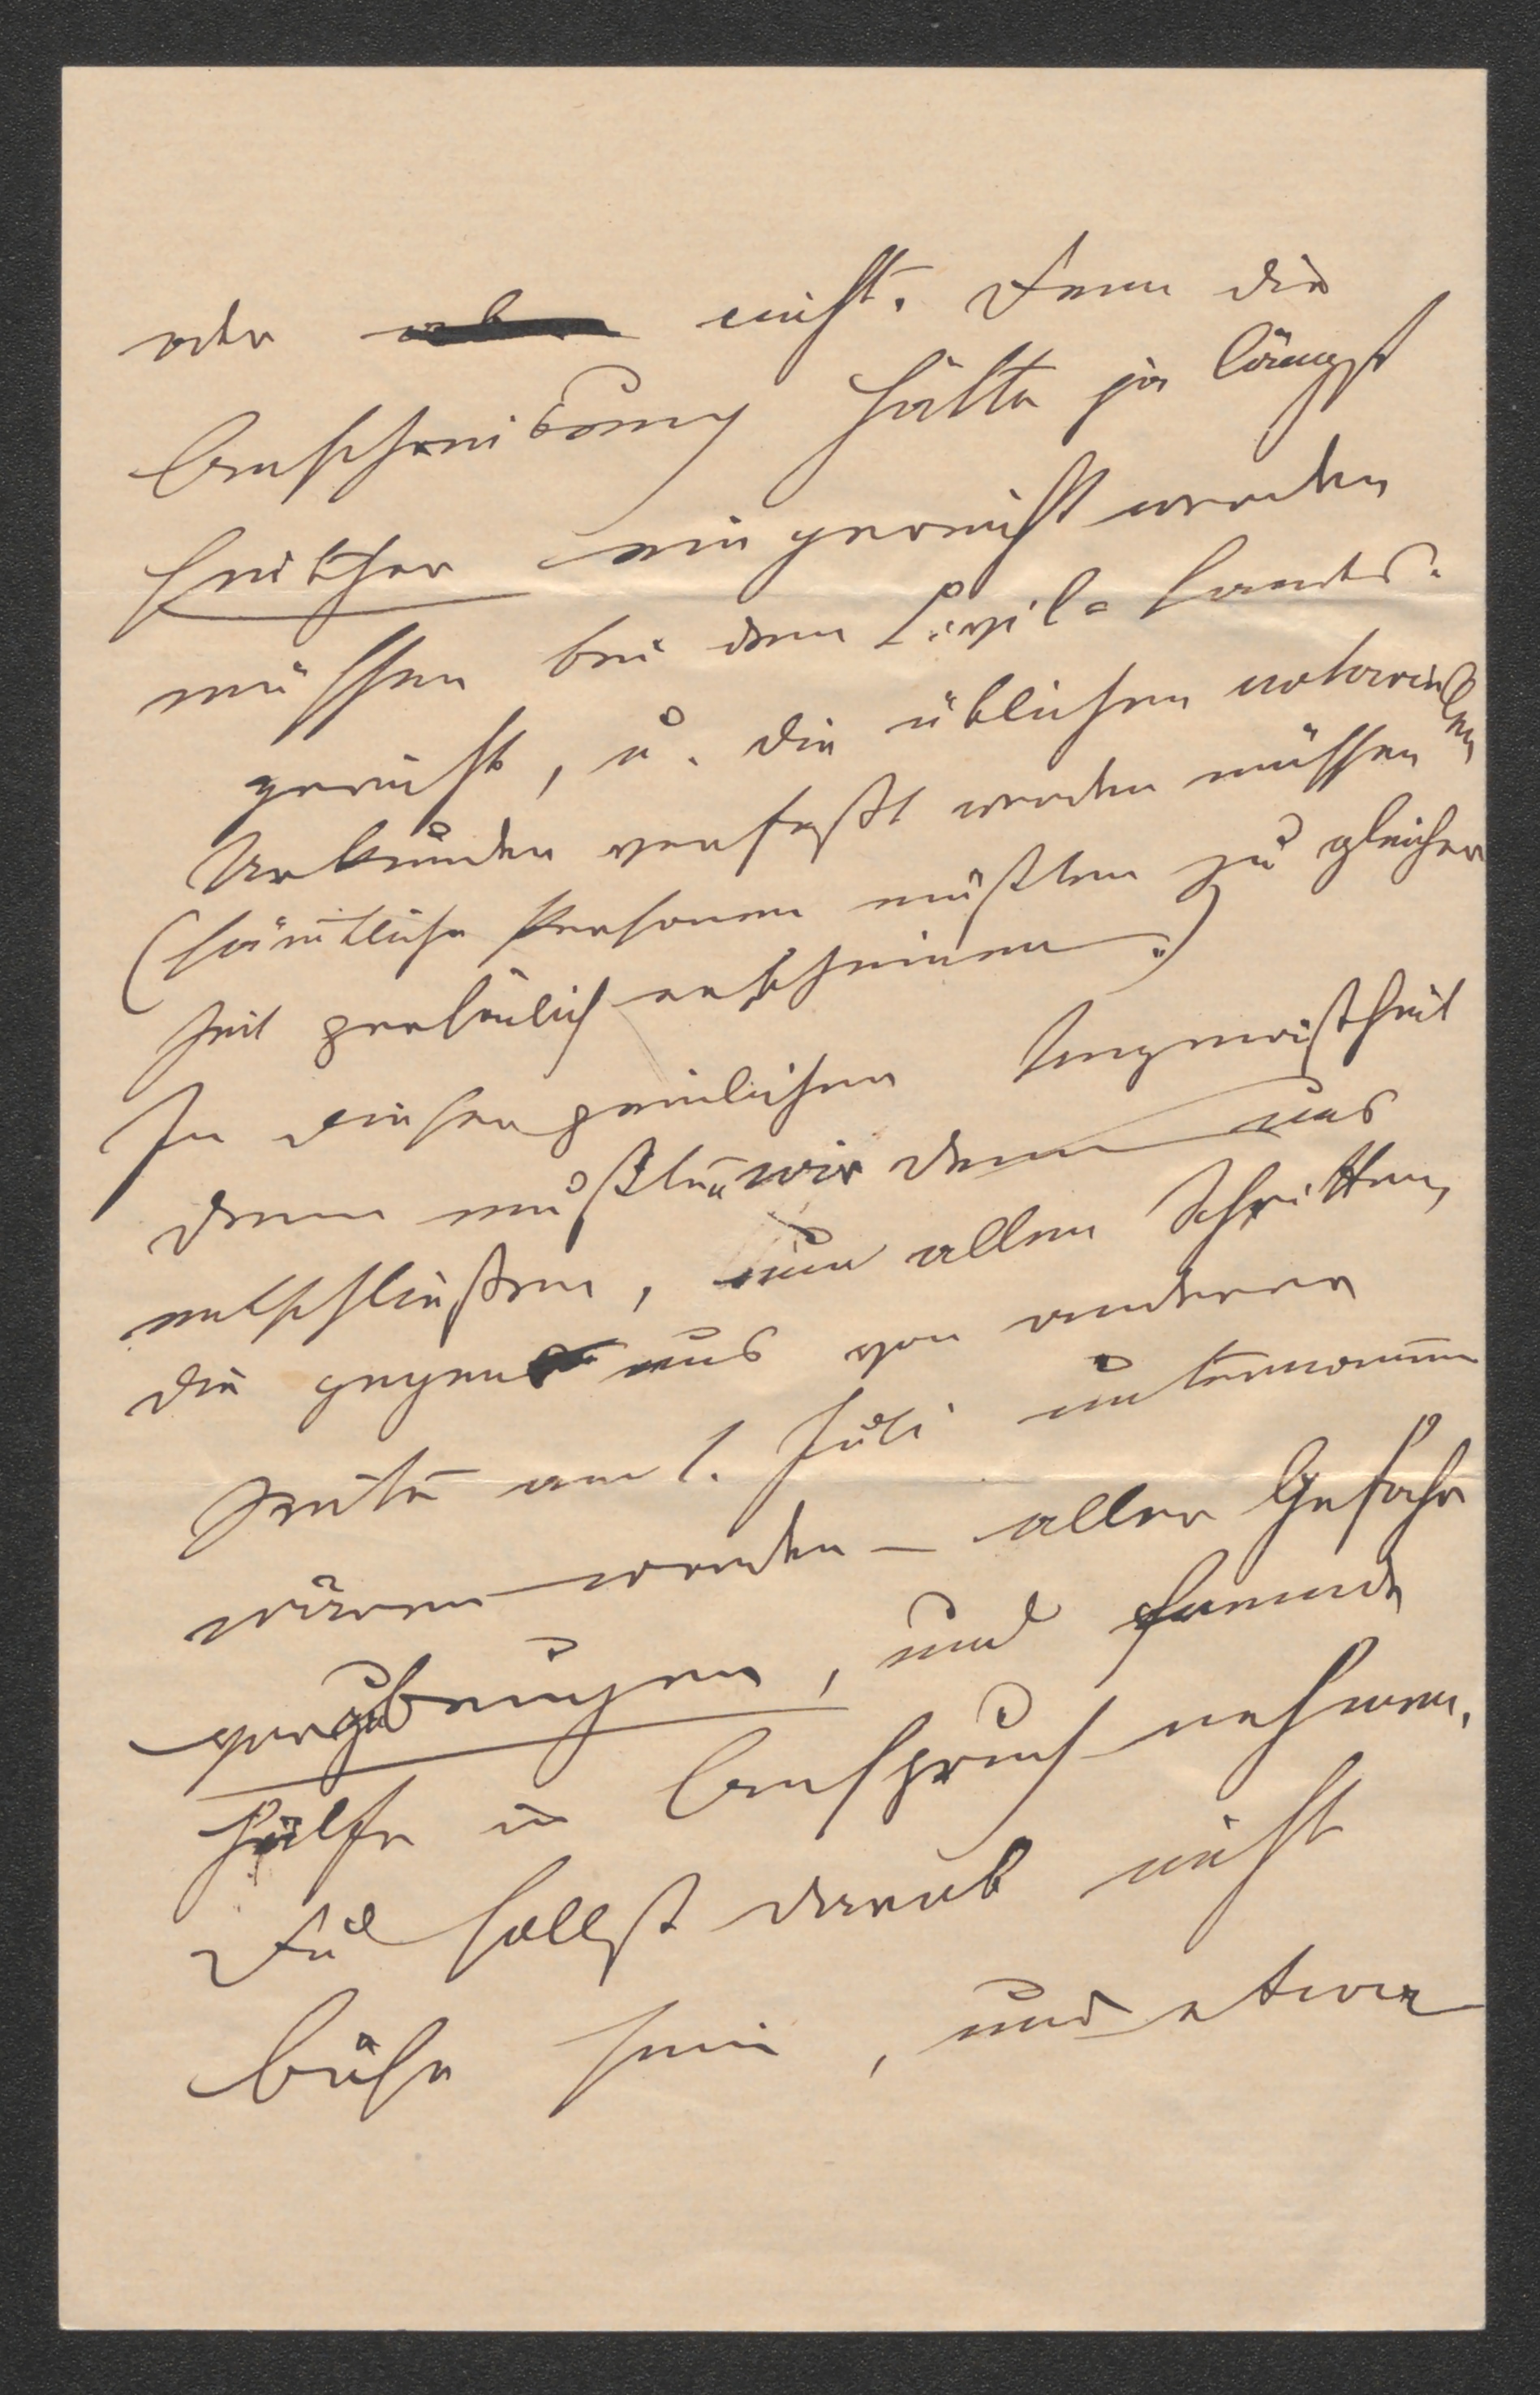 oder nicht. Denn die
Anschreibung hätte ja längst
früher eingereicht werden
müssen bei dem Civil-Landes-
gericht, u. die üblichen notariellen
Urkunden verfaßt werden müssen
(sämtliche Personen müßten zu gleicher
Zeit persönlich erscheinen.)
In dieser peinlichen Ungewißheit
denn mußten wir denn uns
entschließen, um allen Schritten,
die gegen uns von anderer
Seite am 1. Juli unternommen
wären worden – aller Gefahr
vorzubeugen, und fremde
Hülfe in Anspruch nehmen.
Du sollst darob nicht
böse sein, und etwa